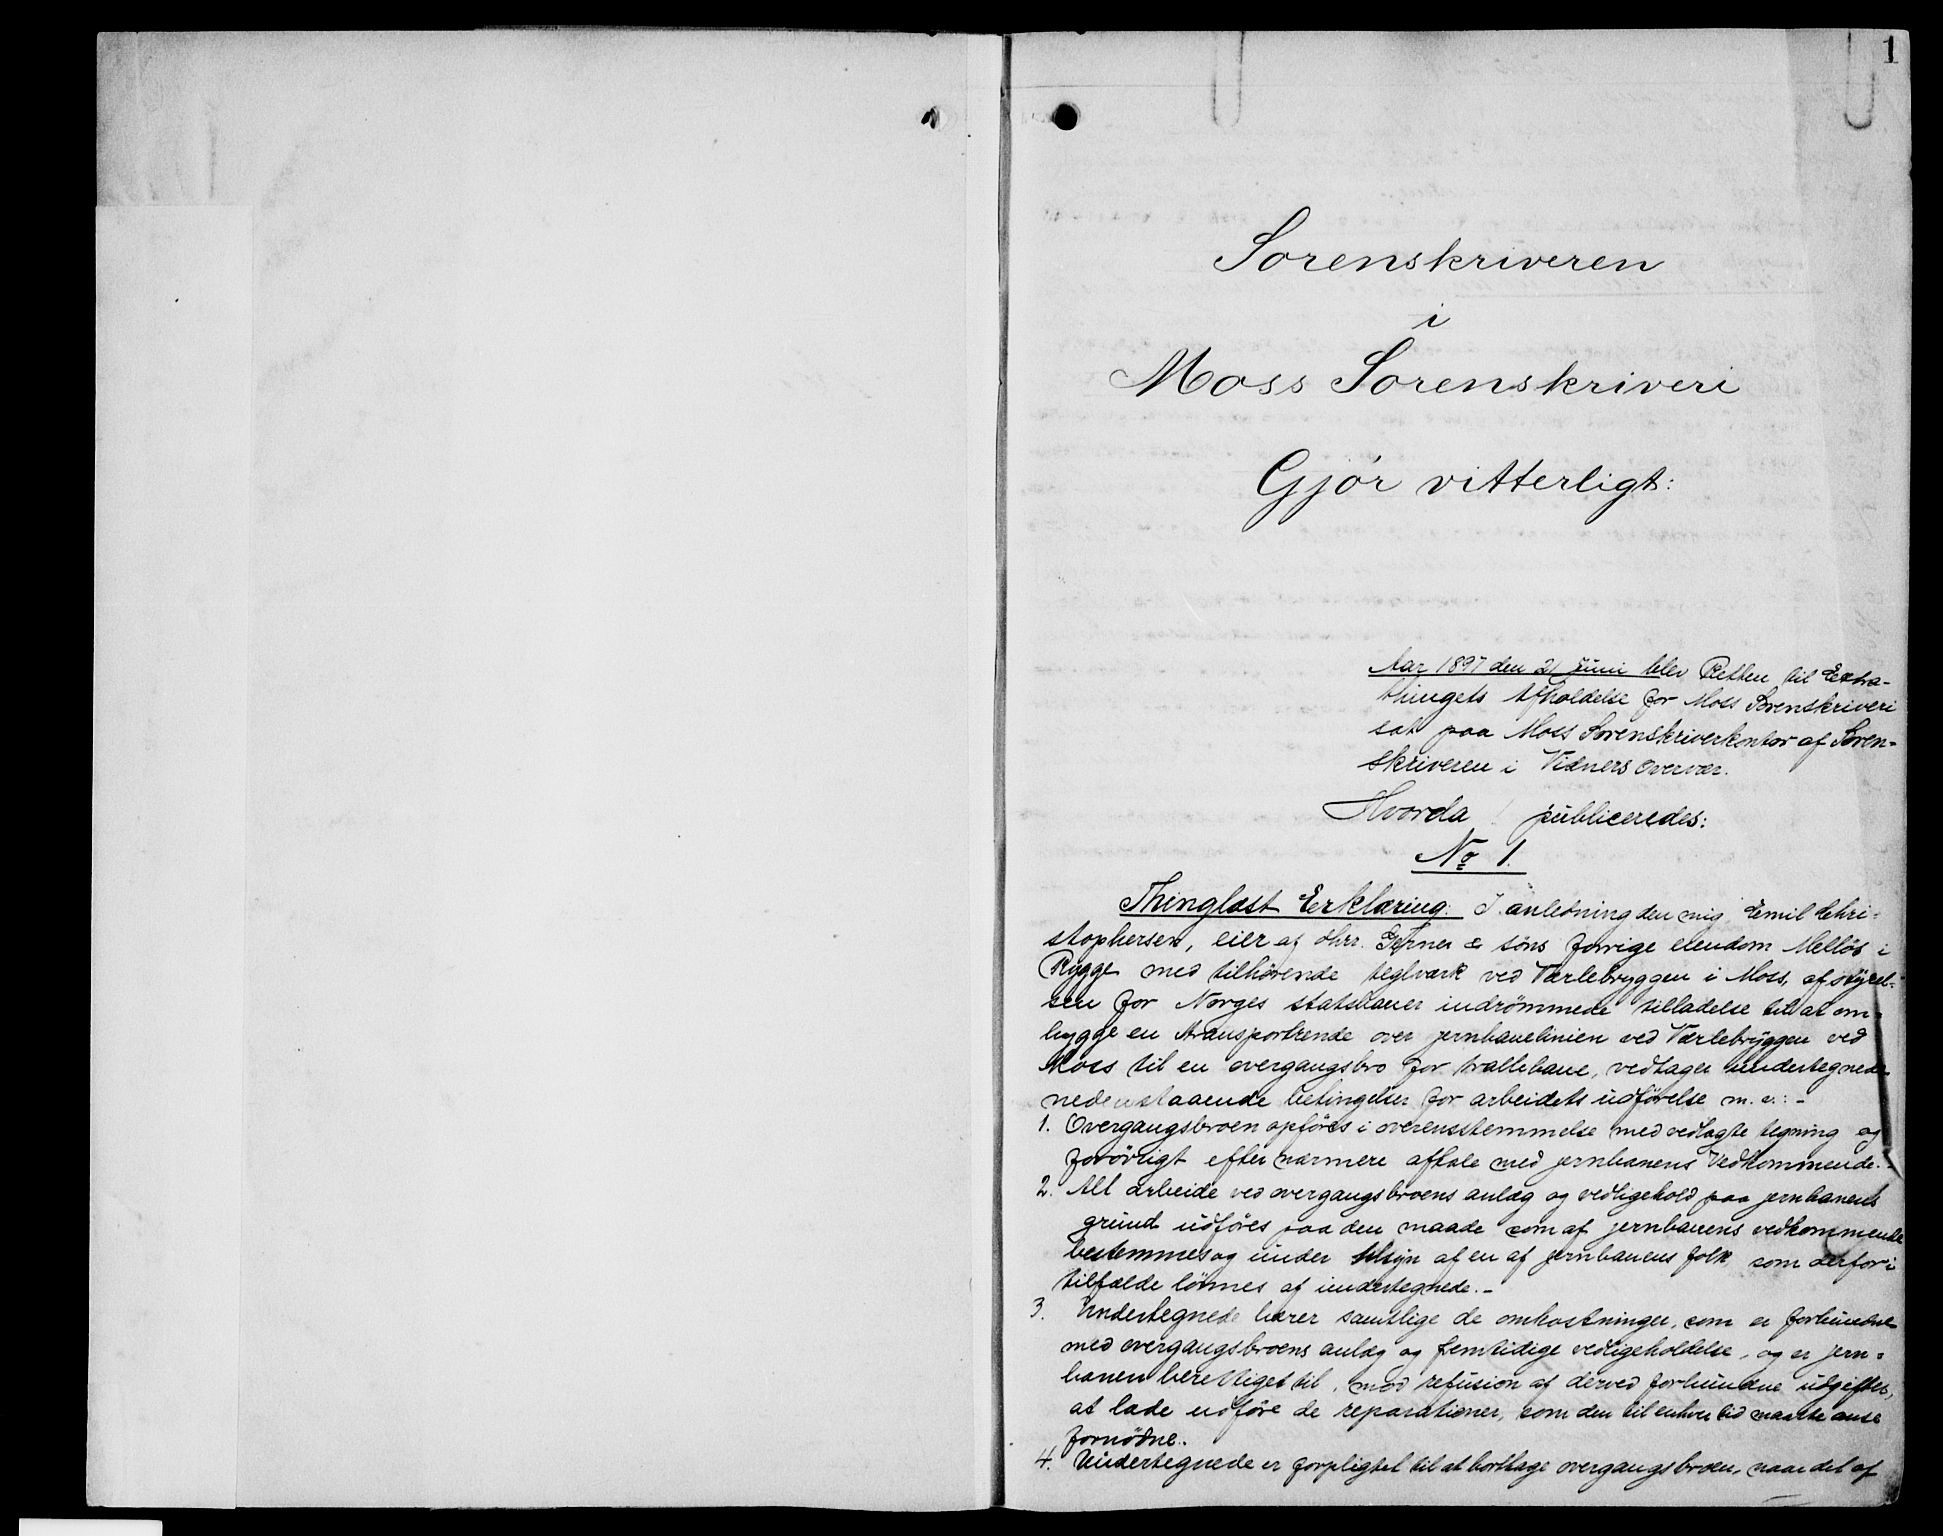 1
Sorenskriveren
i
Moss Sorenskriveri
Gjör vitterligt:
Aar 1897 den 21 Juni blev Retten til Extra-
thingets Afholdelse for Moss Sorenskriveri
sat paa Moss Sorenskriverkontor af Soren-
skriveren i Vidners Overvær.
Hvorda publiceredes:
No 1.
Thinglæst Erklæring: I anledning den mig Emil Chri-
stophersen, eier af dhrr. Gerner & söns forrige eiendom Mellös i
Rygge med tilhörende teglværk ved Værlebryggen i Moss, af styrel-
sen for Norges statsbaner indrömmede tilladelse til at om-
bygge en transportrende over jernbanelinien ved Værlebryggen ved
Moss til en overgangsbro for trallebane, vedtager undertegnede
nedenstaaende betingelser for arbeidets udförelse m. v.: -
1. Overgangsbroen opföres i overensstemmelse med vedlagte tegning og
forövrigt efter nærmere aftale med jernbanens Vedkommende. -
2. Alt arbeide ved overgangsbroens anlæg og vedligehold paa jernbanens
grund udföres paa den maade som af jernbanens vedkommende
bestemmes og under tilsyn af en af jernbanens folk som derfor i
tilfælde lönnes af undertegnede. -
3. Undertegnede bærer samtlige de omkostninger, som er forbundne
med overgangsbroens anlæg og fremtidige vedligeholdelse, og er jern-
banen berettiget til, mod refusion af derved forbundne udgifter,
at lade udföre de reparationer, som den til enhver tid maatte anse
fornödne.
4. Undertegnede er forpligtet til at borttage overgangsbroen, naar det af